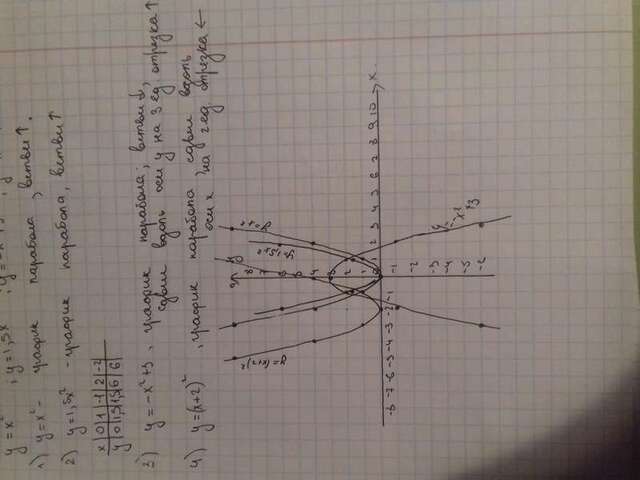 y = x² ; y = 1,5x
1) y = x² - график парабола, ветви ↑.
2) y = 1,5x² - график парабола, ветви ↑
x | 0 | 1 | -1 | 2 | -2
y | 0 | 1,5 | 1,5 | 6 | 6
3) y = -x² + 3, график парабола; ветви ↓,
сдвиг вдоль оси y на 3 ед. отрезка ↑
4) y = (x+2)², график парабола, сдвиг вдоль
оси x на 2 ед. отрезка ←
y = (x+2)²
y = 1,5x²
y = x²
y = -x² + 3
-8 -7 -6 -5 -4 -3 -2 -1 0 1 2 3 4 5 6 7 8 9 10 x
y 9 8 7 6 5 4 3 2 1
-1 -2 -3 -4 -5 -6